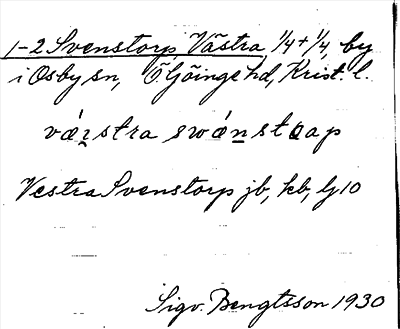 1-2 Svenstorp Västra 1/4+1/4 by
i Osby sn, Ö. Göinge hd, Krist. l.
vǽṛstra swǽnstɑap
Vestra Svenstorp jb, kb, lj 10
Sigv. Bengtsson 1930